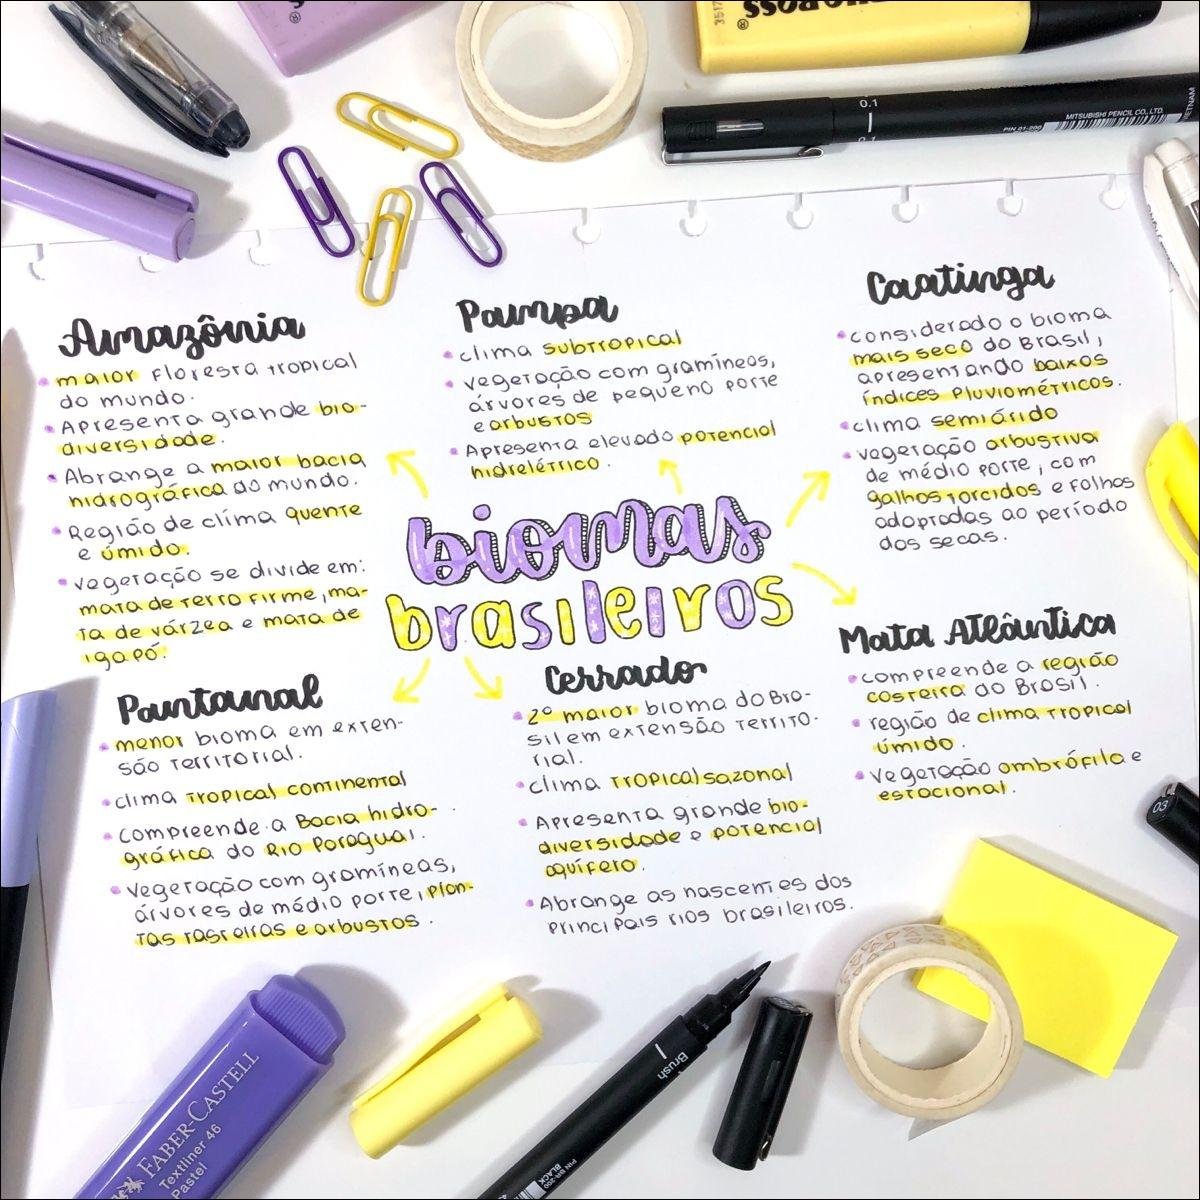 BOSS
®
3517
®
0.1
0.1
MITSUBISHI PENCIL CO., LTD.
PIN 01-200
VIETNAM
Amazônia
• maior floresta tropical
do mundo.
• Apresenta grande bio-
diversidade.
• Abrange a maior bacia
hidrográfica do mundo.
• Região de clima quente
e úmido.
• vegetação se divide em:
mata de terra firme, ma-
ta de várzea e mata de
igapó.
Pampa
• clima subtropical
• vegetação com gramíneas,
árvores de pequeno porte
e arbustos
• Apresenta elevado potencial
hidrelétrico.
Caatinga
• considerado o bioma
mais seco do Brasil,
apresentando baixos
índices pluviométricos.
• clima semiárido
• vegetação arbustiva
de médio porte, com
galhos torcidos e folhas
adaptadas ao período
das secas.
biomas
brasileiros
Pantanal
• menor bioma em exten-
são territorial.
• clima tropical continental
• compreende a Bacia hidro-
gráfica do Rio Paraguai.
• vegetação com gramíneas,
árvores de médio porte, plan-
tas rasteiras e arbustos.
Cerrado
• 2º maior bioma do Bra-
sil em extensão territo-
rial.
• clima tropical sazonal
• Apresenta grande bio-
diversidade e potencial
aquífero.
• Abrange as nascentes dos
principais rios brasileiros.
Mata Atlântica
• compreende a região
costeira do Brasil.
• região de clima tropical
úmido.
• vegetação ombrófila e
estacional.
03
FABER-CASTELL
Textliner 46
Pastel
Brush
PIN BR-200
BLACK